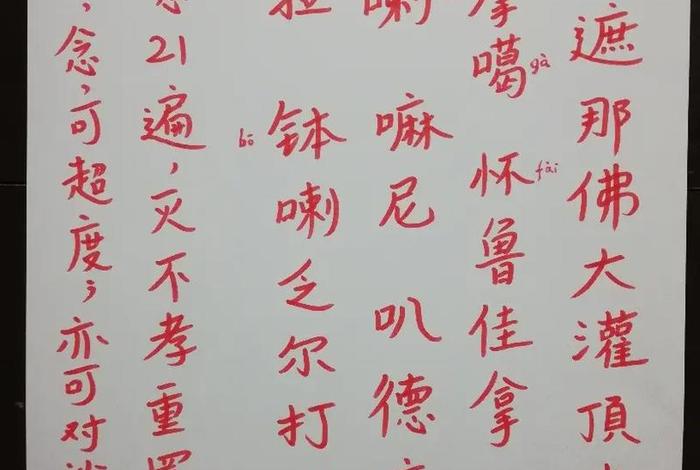 遮那佛大灌頂
噶gà 怀fài鲁佳拿
喇 嘛尼 叭德
bō钵喇乏尔打
21遍，灭不孝重
，念，可超度；亦可对